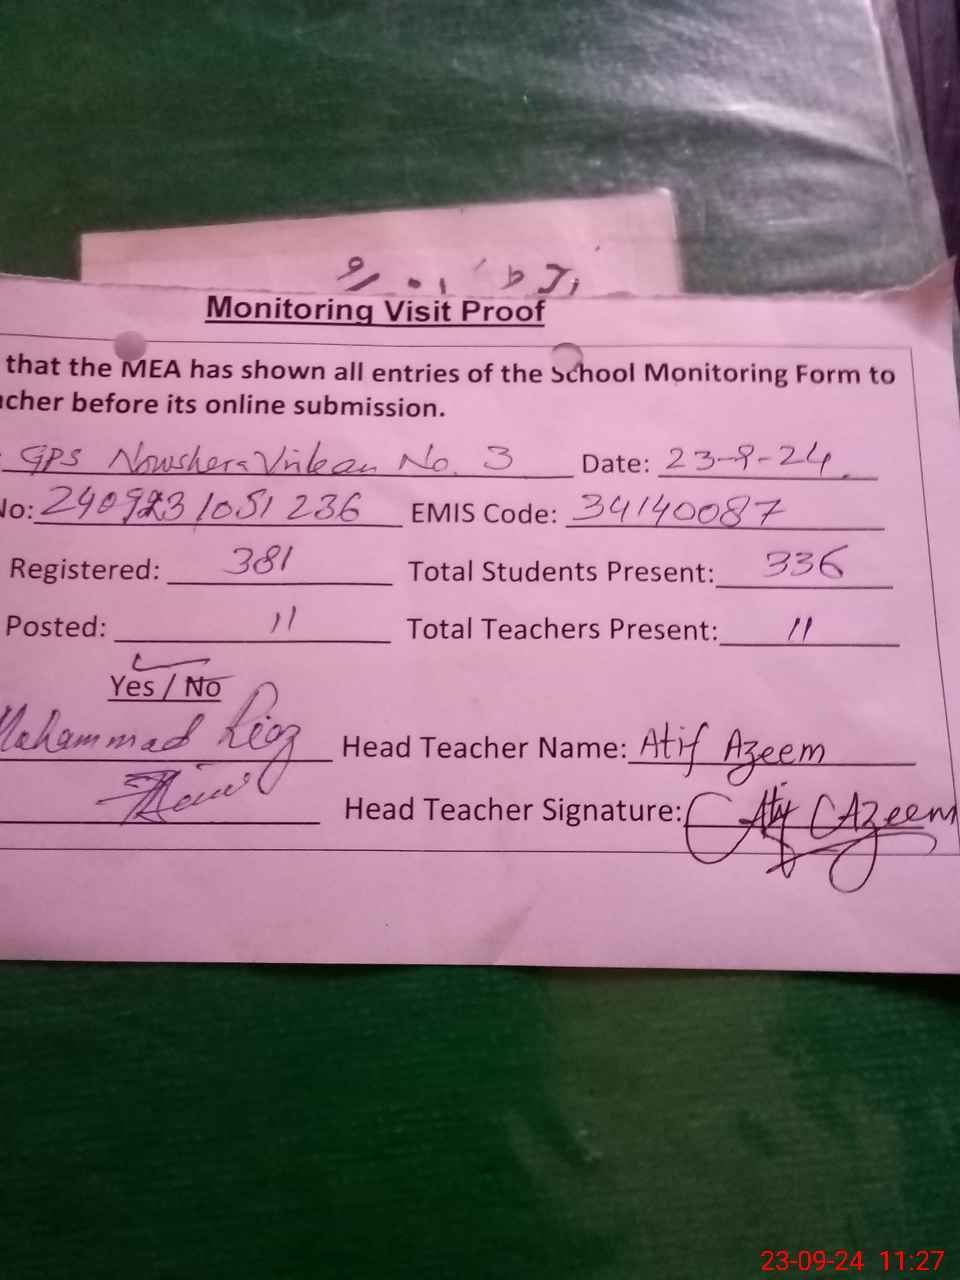 Monitoring Visit Proof
that the MEA has shown all entries of the School Monitoring Form to
acher before its online submission.
GPS Nowshera Virkan No. 3 Date: 23-9-24
No: 240923 1051 236 EMIS Code: 34140087
Registered: 381 Total Students Present: 336
Posted: 11 Total Teachers Present: 11
Yes / No
Mohammad Riaz Head Teacher Name: Atif Azeem
Head Teacher Signature: Atif Azeem
23-09-24 11:27